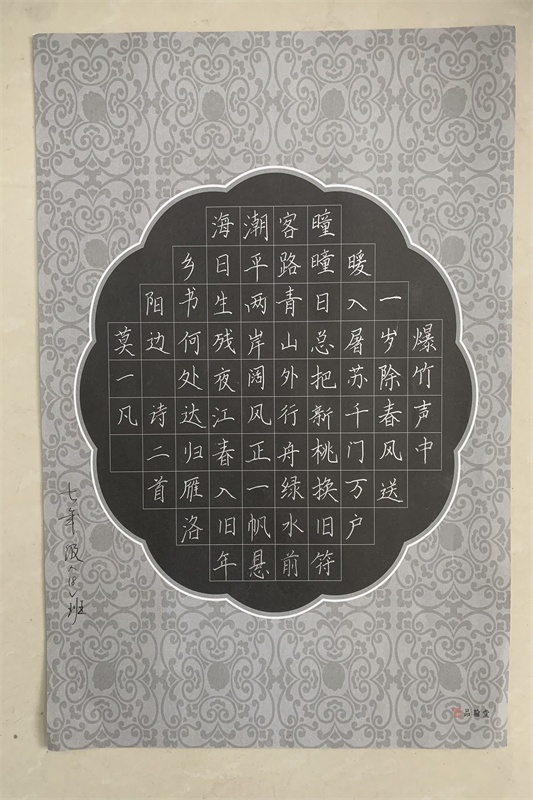 爆竹声中
一岁除春风送
暖入屠苏千门万户
曈曈日总把新桃换旧符
客路青山外行舟绿水前
潮平两岸阔风正一帆悬
海日生残夜江春入旧年
乡书何处达归雁洛
阳边 诗二首
莫一凡
七年级(8)班
品翰堂